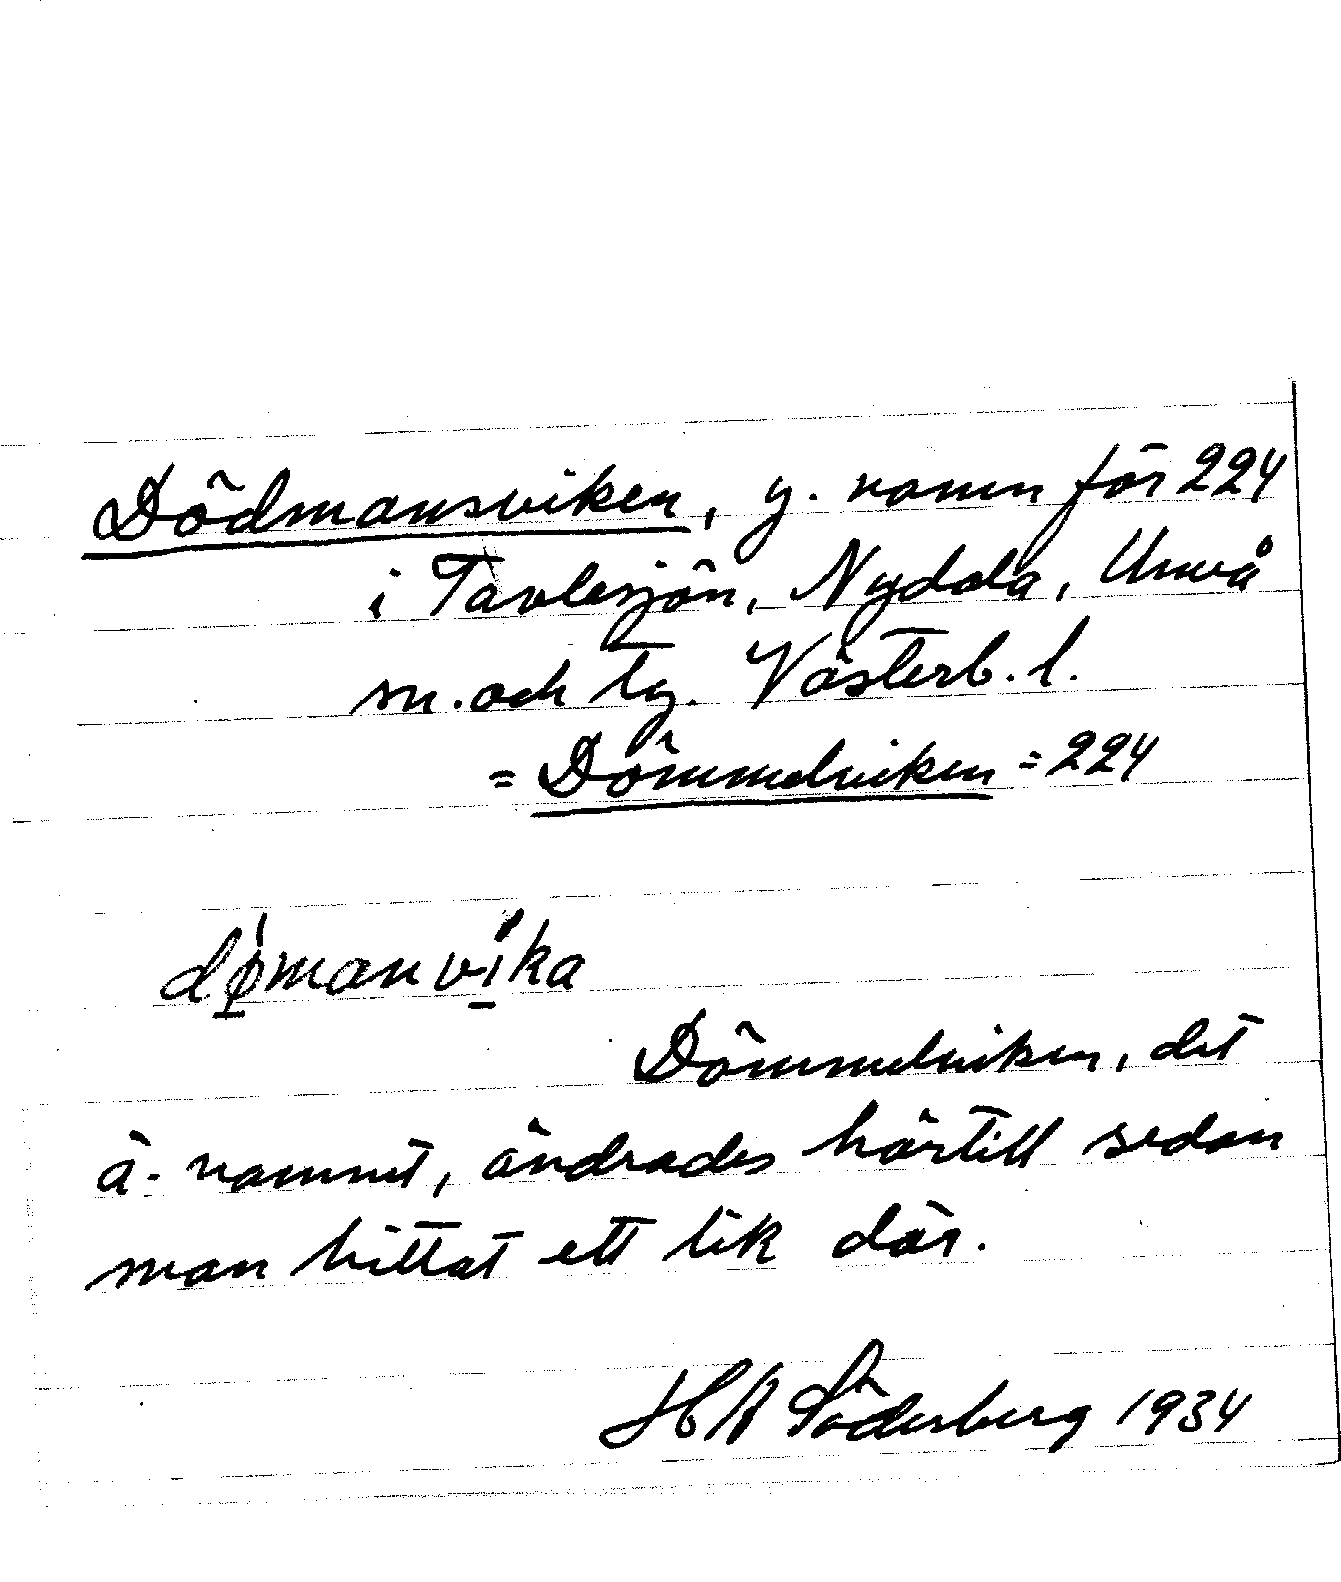 Dödmansviken, y. namn för 224
i Tavlesjön, Nydala, Umeå
sn. och tg. Västerb. l.
= Dömmelviken = 224
dømanvika
Dömmelviken, det
ä. namnet, ändrades härtill sedan
man hittat ett lik där.
HA Söderberg 1934